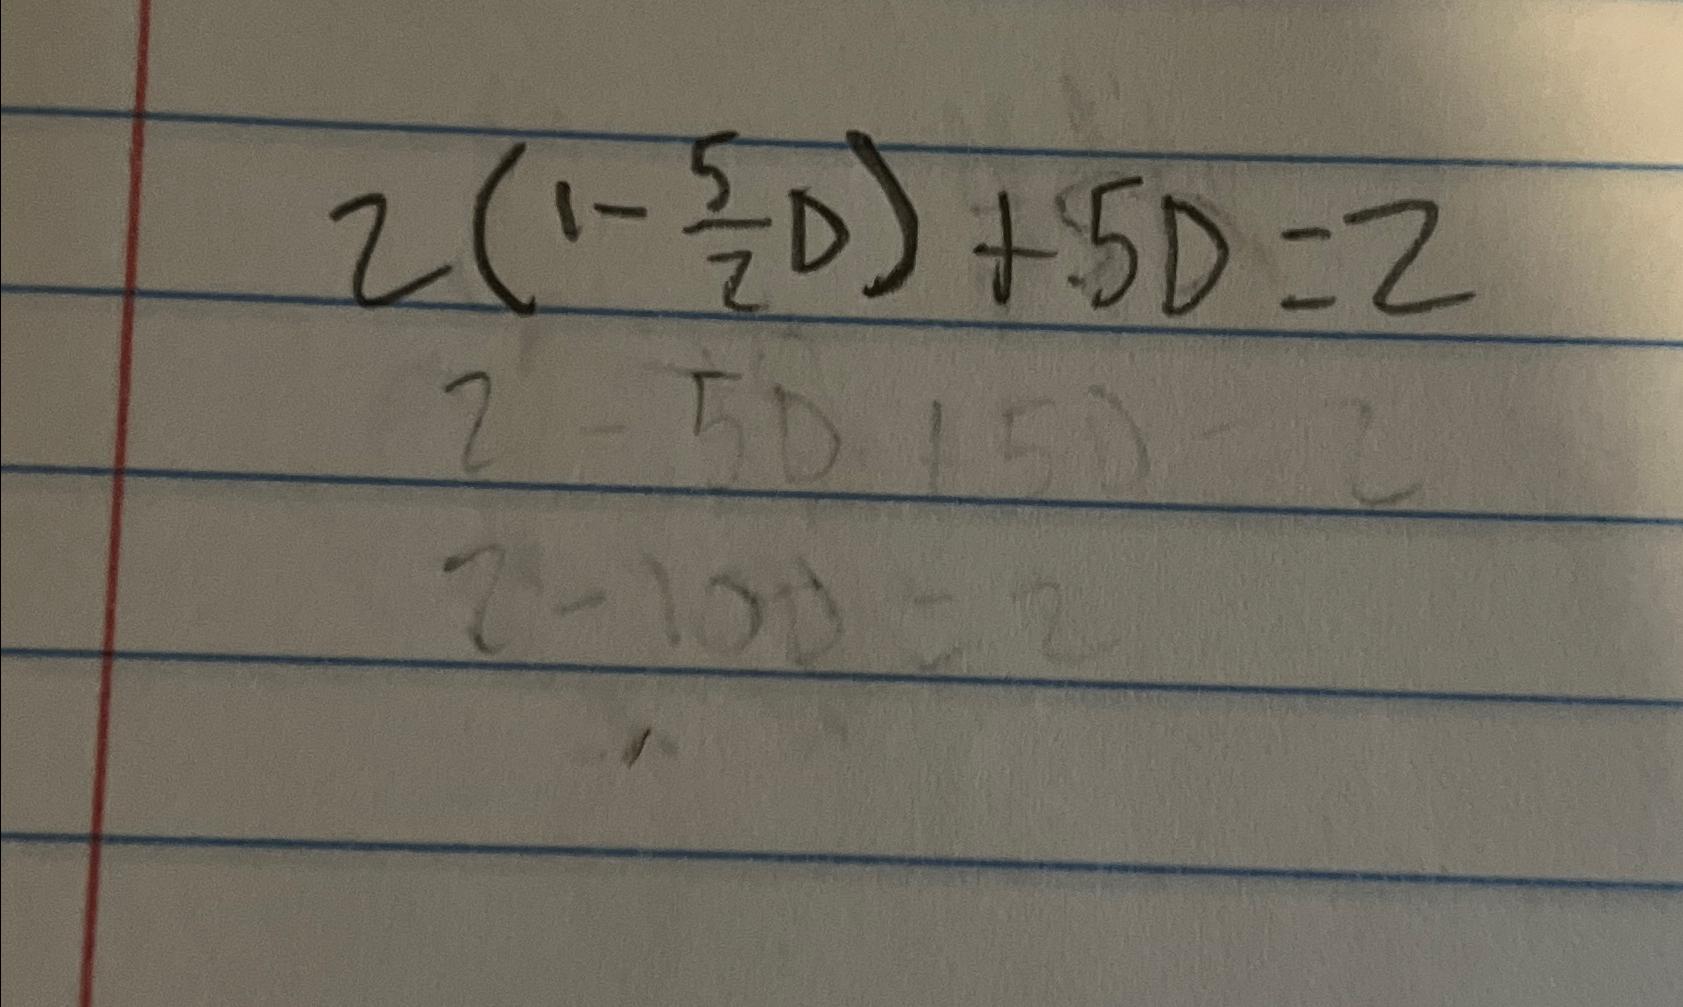 2(1-5/2D)+5D=2
2-5D+5D=2
2-10D=2